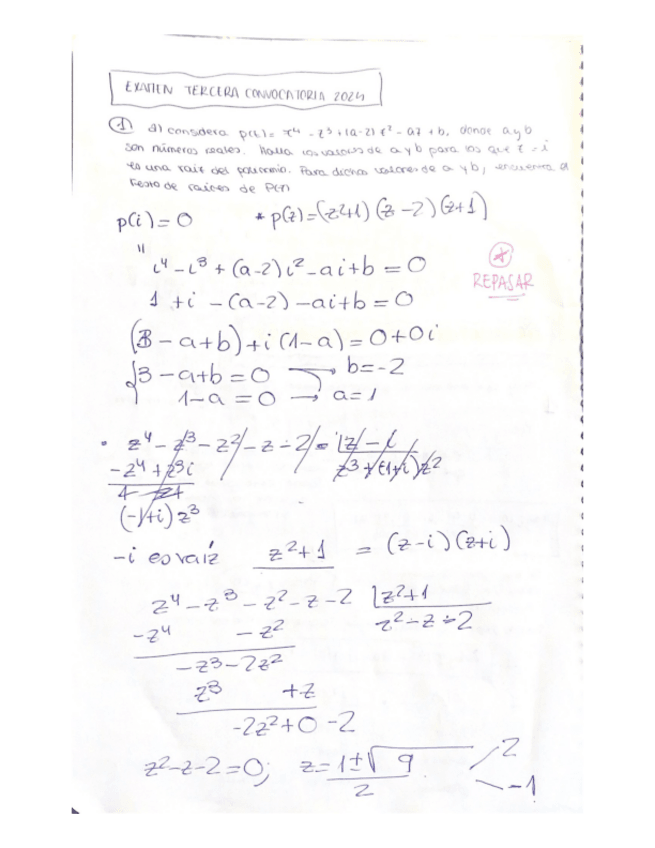 EXAMEN TERCERA CONVOCATORIA 2024
① a) considera p(z) = z⁴ - z³ + (a-2) z² - az + b, donde a y b
son números reales. Halla los valores de a y b para los que z = i
es una raíz del polinomio. Para dichos valores de a y b, encuentra el
resto de raíces de P(z)
p(i) = 0 * p(z) = (z²+1) (z-2) (z+1)
"
i⁴ - i³ + (a-2) i² - ai + b = 0
REPASAR
1 + i - (a-2) - ai + b = 0
(3 - a + b) + i (1 - a) = 0 + 0i
3 - a + b = 0 → b = -2
1 - a = 0 → a = 1
• z⁴ - z³ - z² - z - 2 = z - i
-z⁴ + z³i z³ + (-1+i) z²
(-1+i) z³
-i es raíz z²+1 = (z-i) (z+i)
z⁴ - z³ - z² - z - 2 | z²+1
-z⁴ - z² z² - z - 2
-z³ - 2z²
z³ + z
-2z² + 0 - 2
z² - z - 2 = 0; z = 1 ± √9 2
2 -1